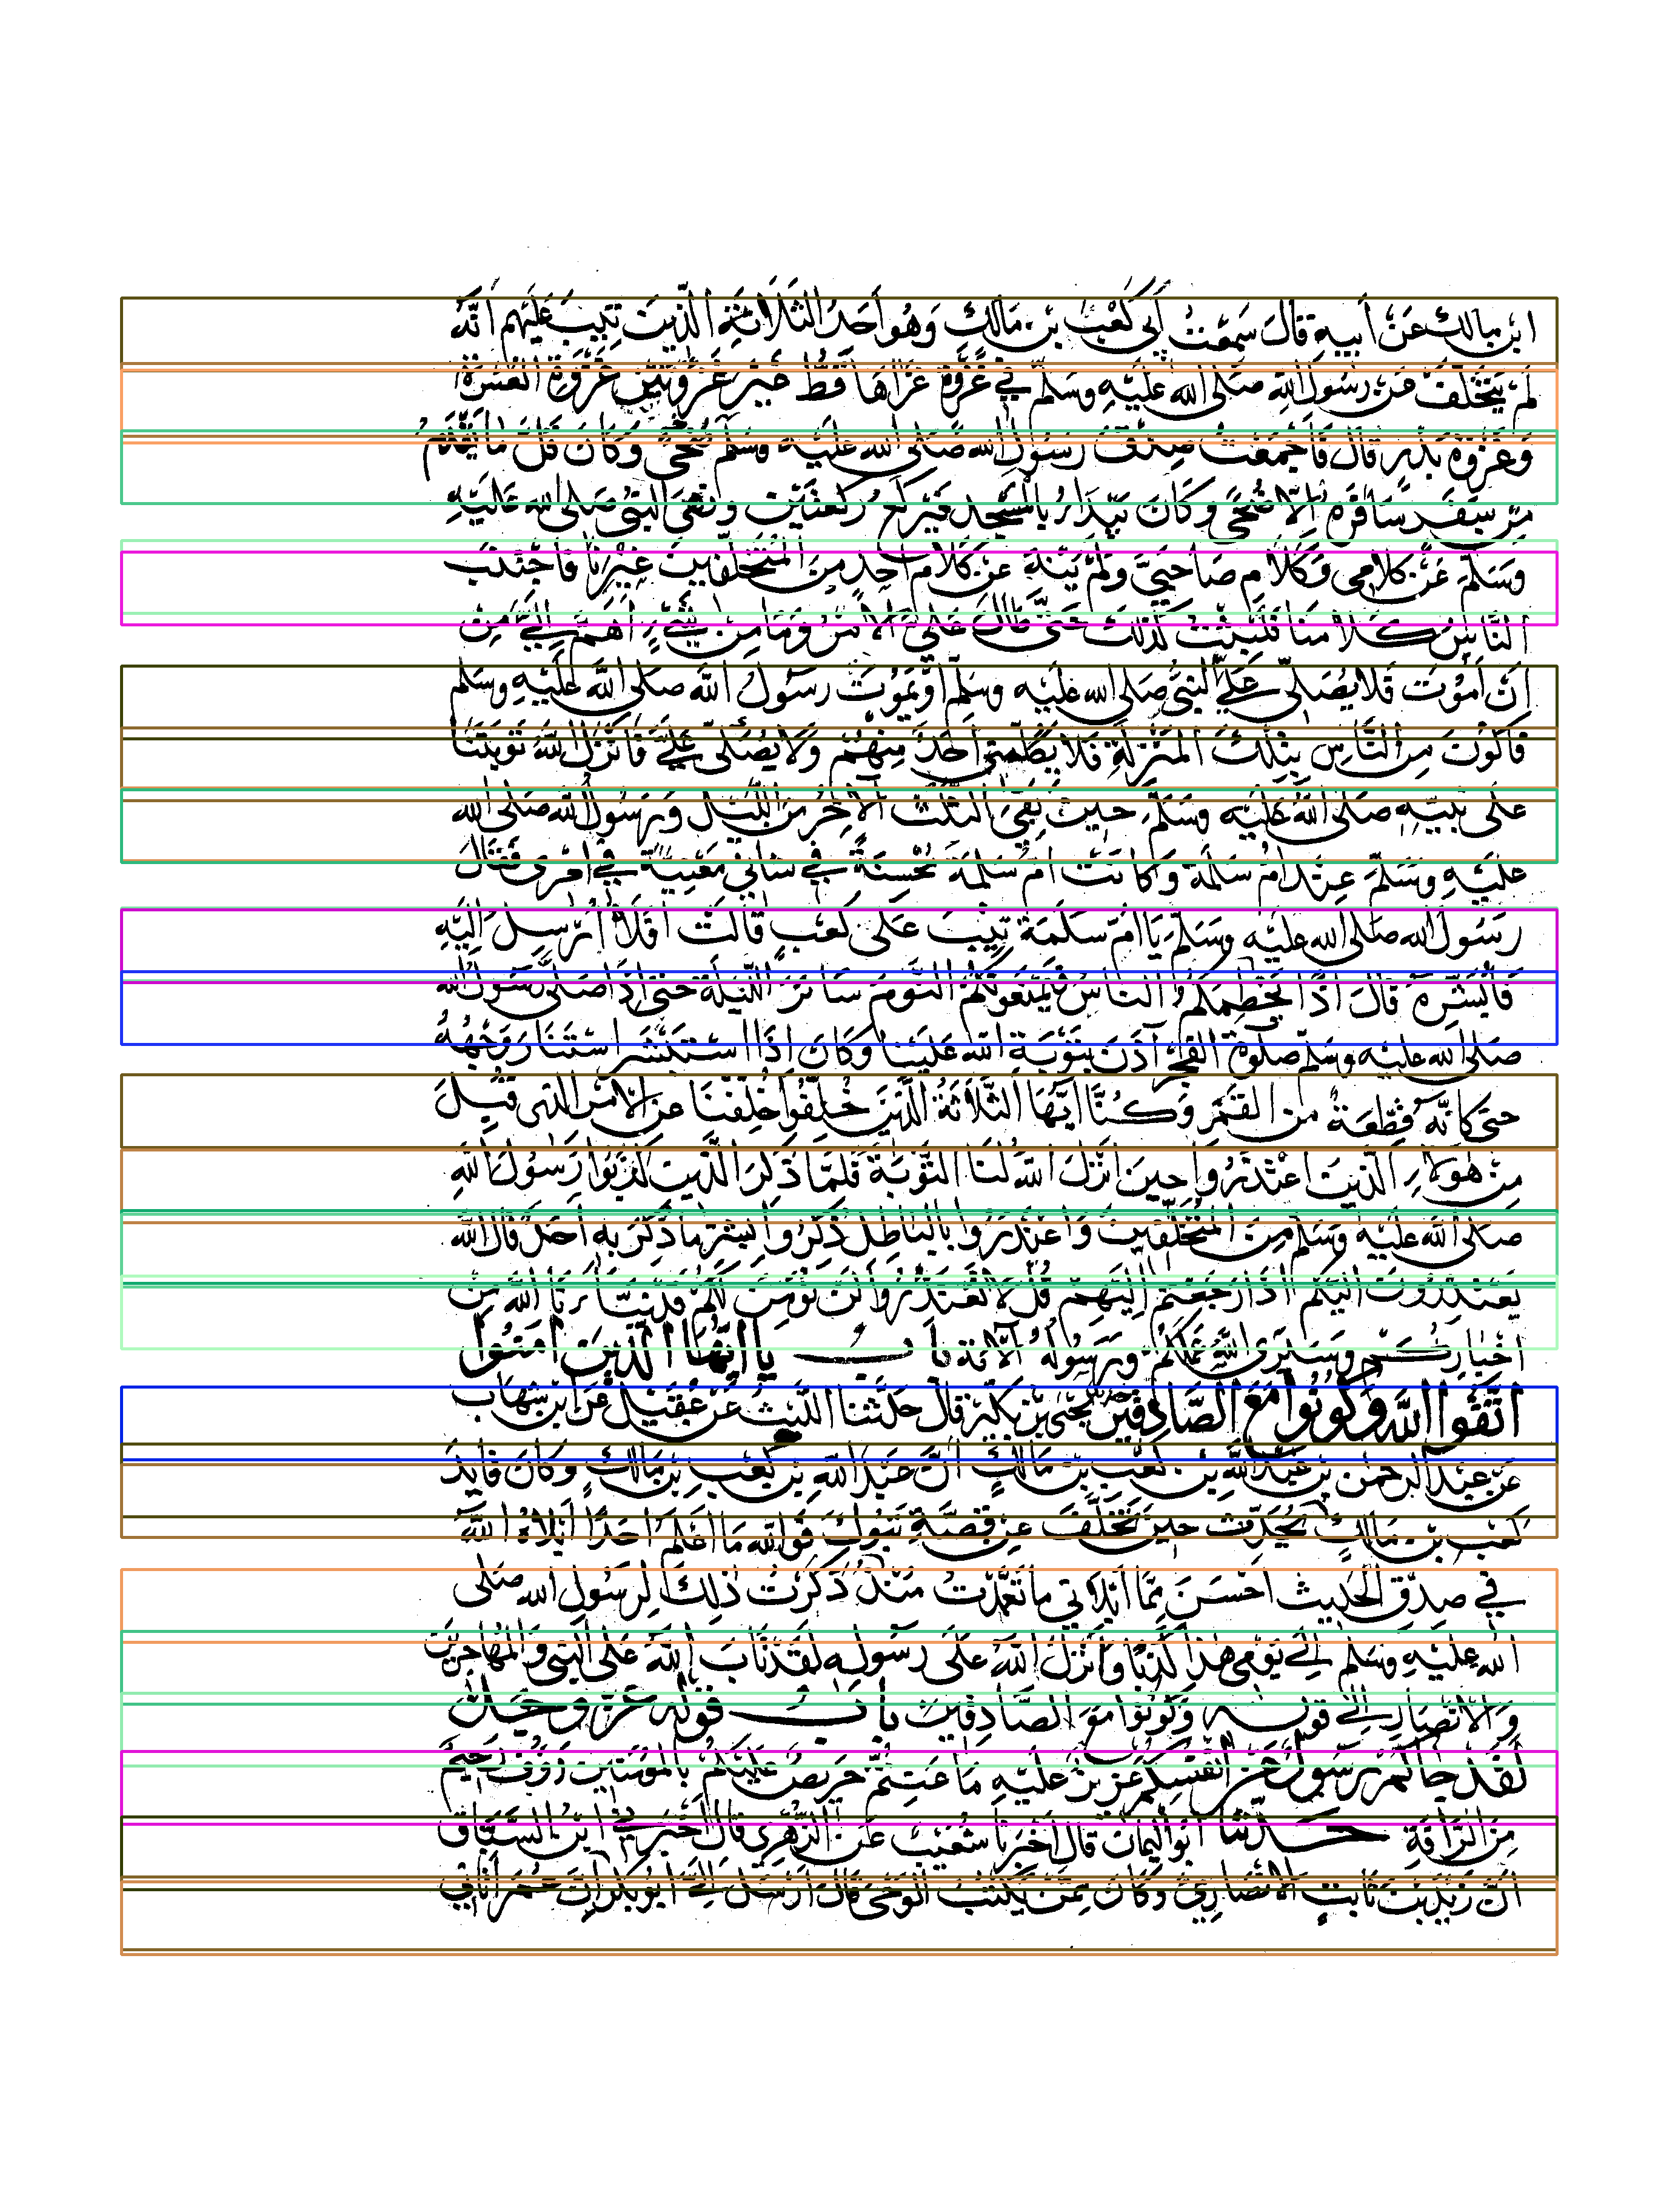 ابن مالك عن أبيه قال سمعت أبي كعب بن مالك وهو أحد الثلاثة الذين تيب عليهم أنه
لم يتخلف عن رسول الله صلى الله عليه وسلم في غزوة غزاها قط غير غزوتين غزوة العسرة
وغزوة بدر قال فأجمعت صدق رسول الله صلى الله عليه وسلم ضحى وكان قل ما يقدم
من سفر سافره إلا ضحى وكان يبدأ بالمسجد فيركع ركعتين ونهى النبي صلى الله عليه
وسلم عن كلامي وكلام صاحبي ولم ينه عن كلام أحد من المتخلفين غيرنا فاجتنب
الناس كلامنا فلبثت كذلك حتى طال علي الأمر وما من شيء أهم إلي من
أن أموت فلا يصلي علي النبي صلى الله عليه وسلم أو يموت رسول الله صلى الله عليه وسلم
فأكون من الناس بتلك المنزلة فلا يكلمني أحد منهم ولا يصلى علي فأنزل الله توبتنا
على نبيه صلى الله عليه وسلم حين بقي الثلث الآخر من الليل ورسول الله صلى الله
عليه وسلم عند أم سلمة وكانت أم سلمة محسنة في شأني معنية في أمري فقال
رسول الله صلى الله عليه وسلم يا أم سلمة تيب على كعب قالت أفلا أرسل إليه
فأبشره قال إذا يحطمكم الناس فيمنعونكم النوم سائر الليلة حتى إذا صلى رسول الله
صلى الله عليه وسلم صلوة الفجر آذن بتوبة الله علينا وكان إذا استبشر استنار وجهه
حتى كأنه قطعة من القمر وكنا أيها الثلاثة الذين خلفوا خلفنا عن الأمر الذي قبل
من هؤلاء الذين اعتذروا حين أنزل الله لنا التوبة فلما ذكر الذين كذبوا رسول الله
صلى الله عليه وسلم من المتخلفين واعتذروا بالباطل ذكروا بشر ما ذكر به أحد قال الله
يعتذرون إليكم إذا رجعتم إليهم قل لا تعتذروا لن نؤمن لكم قد نبأنا الله من
أخباركم وسيرى الله عملكم ورسوله الآية باب يا أيها الذين آمنوا
اتقوا الله وكونوا مع الصادقين يحيى بن بكير قال حدثنا الليث عن عقيل عن ابن شهاب
عن عبد الرحمن بن عبد الله بن كعب بن مالك أن عبد الله بن كعب بن مالك وكان قايد
كعب بن مالك يحدث حين تخلف عن قصة تبوك فوالله ما أعلم أحدا أبلاه الله
في صدق الحديث أحسن مما أبلاني ما تعمدت منذ ذكرت ذلك لرسول الله صلى
الله عليه وسلم إلى يومي هذا كذبا وأنزل الله على رسوله لقد تاب الله على النبي والمهاجرين
والأنصار إلى قوله وكونوا مع الصادقين باب قوله عز وجل
لقد جاكم رسول من أنفسكم عزيز عليه ما عنتم حريص عليكم بالمؤمنين رؤف رحيم
من الرأفة حدثنا أبو اليمان قال أخبرنا شعيب عن الزهري قال أخبرني ابن السباق
أن زيد بن ثابت الأنصاري وكان ممن يكتب الوحي قال أرسل إلي أبو بكر